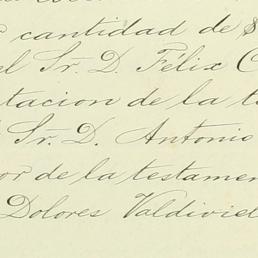 cantidad de $
el Sr. D. Félix C
tacion de la t
Sr. D. Antonio
or de la testamen
Dolores Valdivie